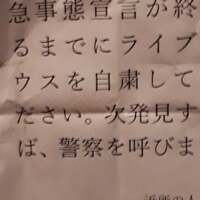 急事態宣言が終
るまでにライブ
ウスを自粛して
ださい。次発見す
ば、警察を呼びま
近所の人